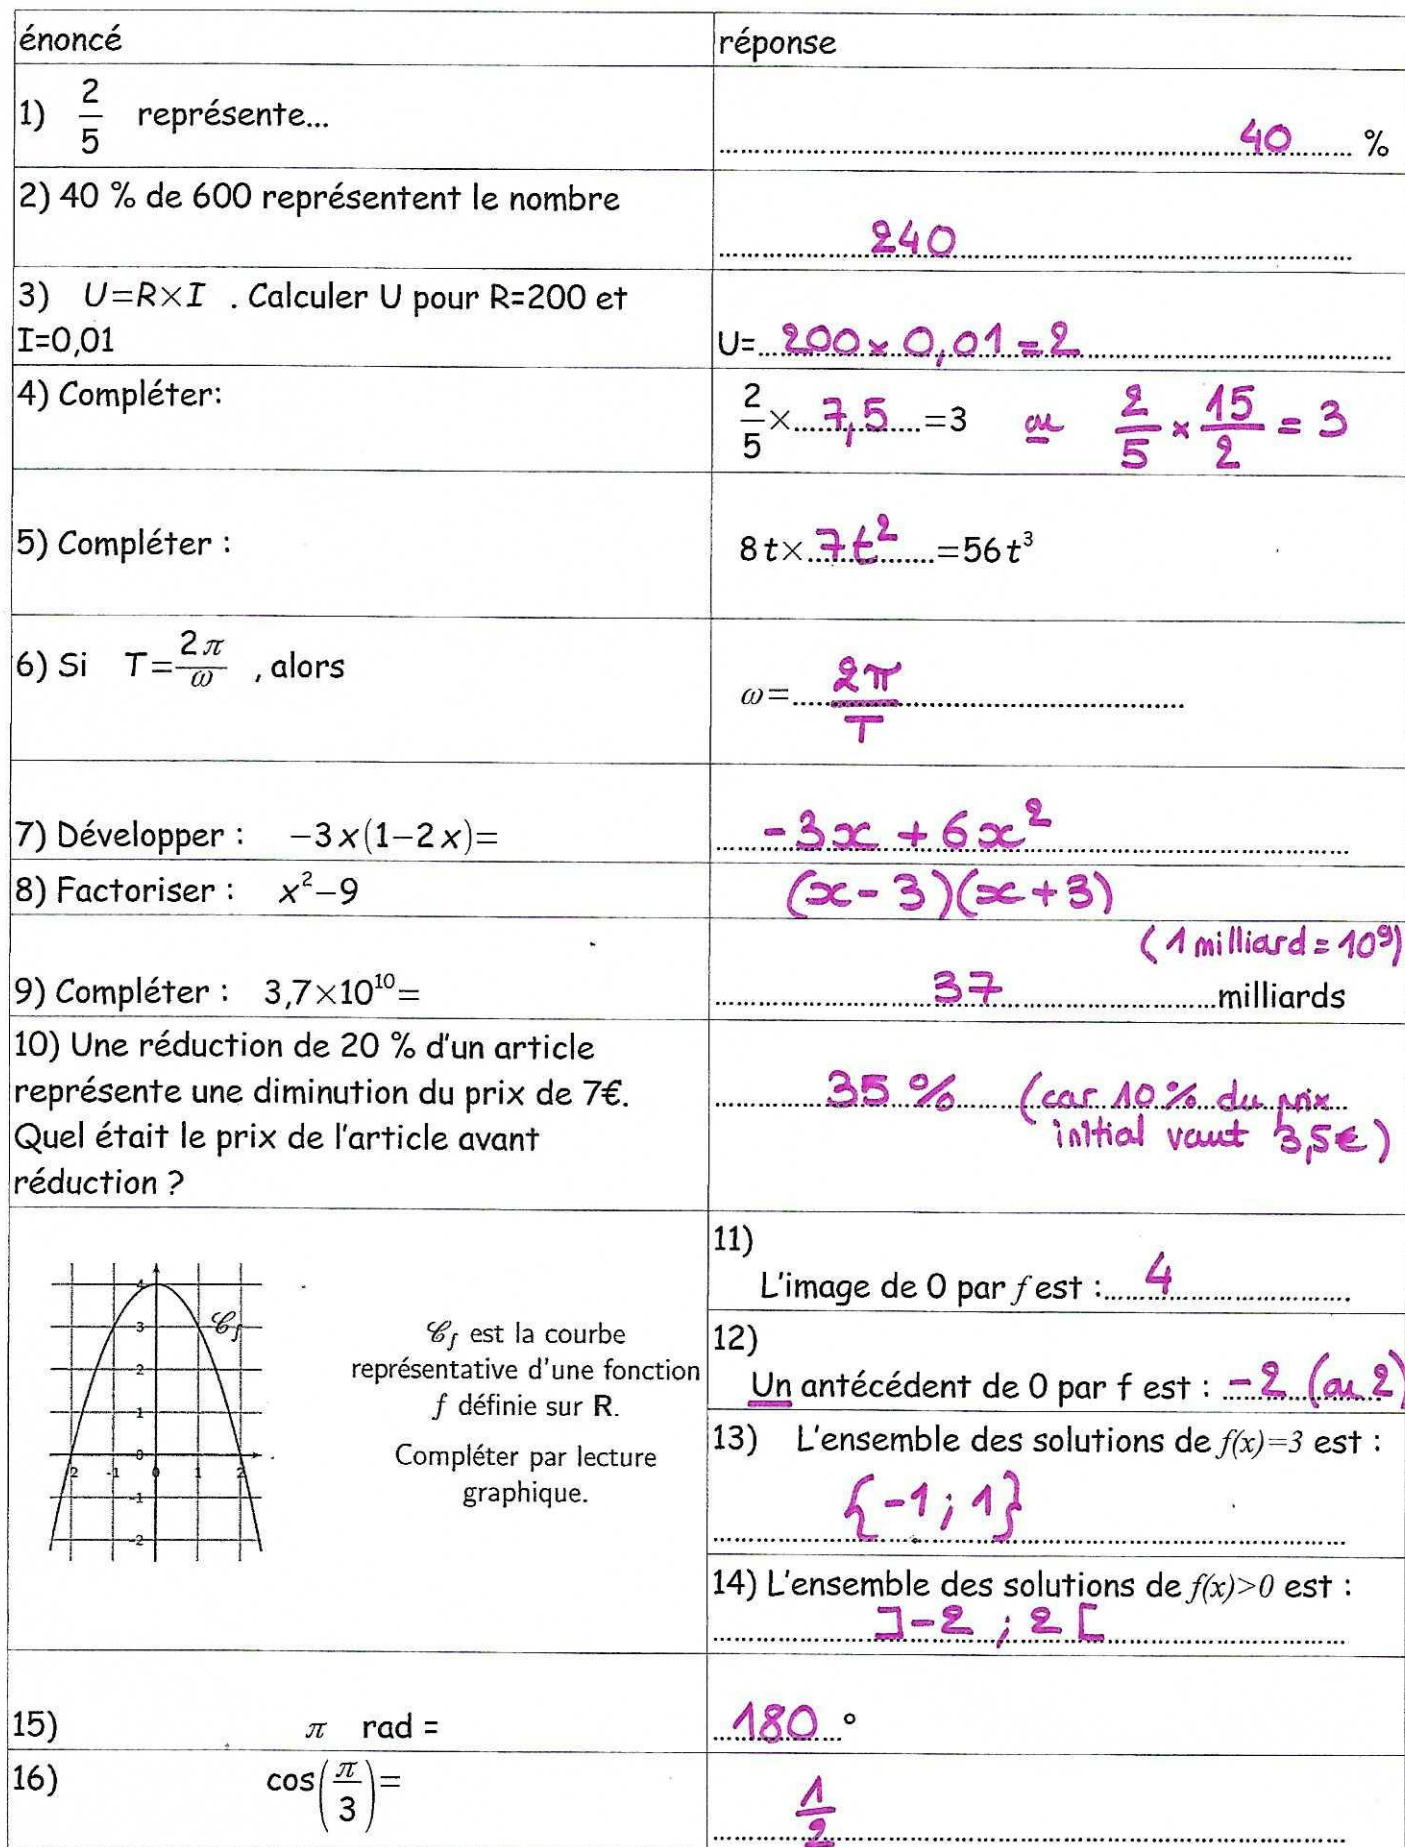 énoncé
réponse
1) 2/5 représente...
40 %
2) 40 % de 600 représentent le nombre
240
3) U=R×I . Calculer U pour R=200 et
I=0,01
U= 200 × 0,01 = 2
4) Compléter:
2/5 × 7,5 =3 ou 2/5 × 15/2 = 3
5) Compléter :
8t× 7t² =56t³
6) Si T=2π/ω , alors
ω= 2π/T
7) Développer : −3x(1−2x)=
-3x + 6x²
8) Factoriser : x²−9
(x-3)(x+3)
(1 milliard = 10⁹)
9) Compléter : 3,7×10¹⁰=
37 milliards
10) Une réduction de 20 % d'un article
représente une diminution du prix de 7€.
Quel était le prix de l'article avant
réduction ?
35 % (car 10 % du prix
initial vaut 3,5€)
4
3
2
1
0
-1
-2
2 -1 0 1 2
𝒞f
𝒞f est la courbe
représentative d'une fonction
f définie sur R.
Compléter par lecture
graphique.
11)
L'image de 0 par f est : 4
12)
Un antécédent de 0 par f est : -2 (ou 2)
13) L'ensemble des solutions de f(x)=3 est :
{-1 ; 1}
14) L'ensemble des solutions de f(x)>0 est :
]-2 ; 2[
15) π rad =
180 °
16) cos(π/3)=
1/2